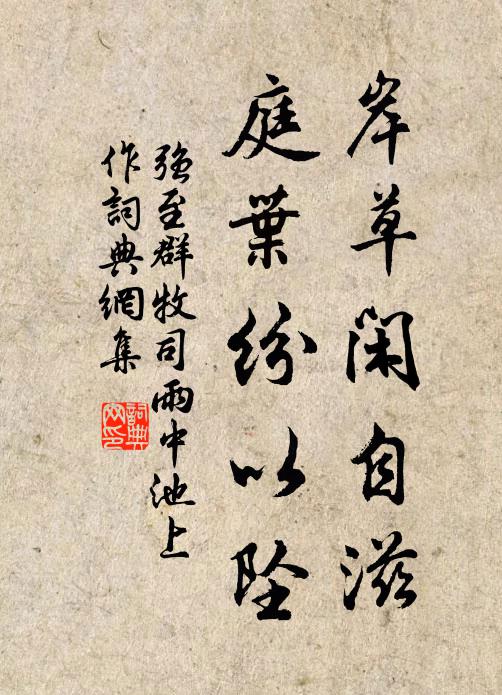 岸草閑自滋
庭葉紛以墜
強至群牧司雨中池上
作詞典網集
詞典
网印